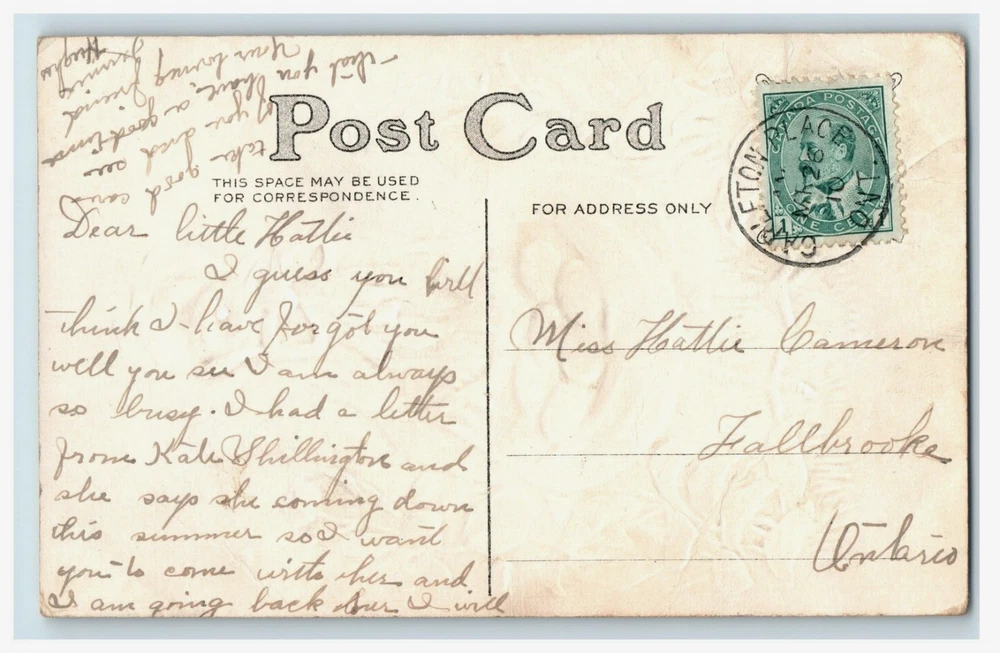 Post Card
THIS SPACE MAY BE USED
FOR CORRESPONDENCE.
FOR ADDRESS ONLY
CANADA POSTAGE
ONE CENT
CARLETON PLACE
ONT
26
10
Dear little Hattie
I guess you will
think I have forgot you
well you see I am always
so busy. I had a letter
from Kate Shillington and
she says she coming down
this summer so I want
you to come with her and
I am going back but I will
take good care
of you and see
that you have a good time
Your loving friend
Jennie
Hughes
Miss Hattie Cameron
Fallbrooke
Ontario